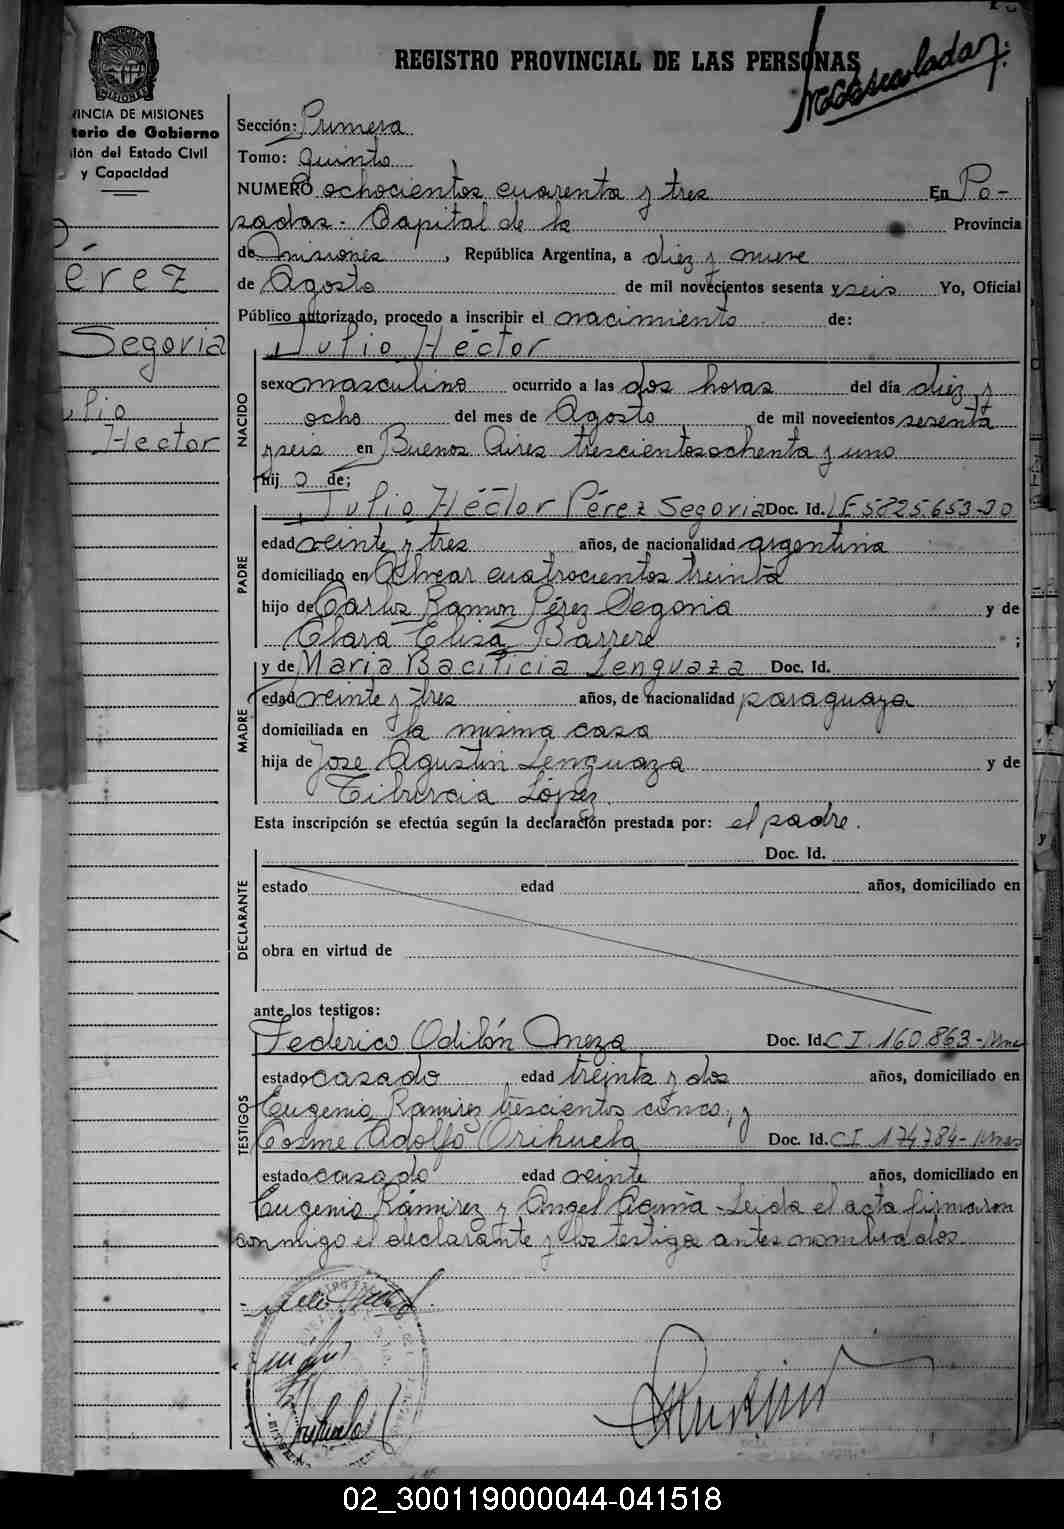 REGISTRO PROVINCIAL DE LAS PERSONAS
MISIONES
VINCIA DE MISIONES
terio de Gobierno
ión del Estado Civil
y Capacidad
Pérez
Segovia
Julio
Hector
Sección: Primera
Tomo: Quinto
NUMERO ochocientos cuarenta y tres En Po-
sadas - Capital de la Provincia
de Misiones, República Argentina, a diez y nueve
de Agosto de mil novecientos sesenta y seis Yo, Oficial
Público autorizado, procedo a inscribir el nacimiento de:
Julio Héctor
NACIDO
sexo masculino ocurrido a las dos horas del día diez y
ocho del mes de Agosto de mil novecientos sesenta
y seis en Buenos Aires trescientos ochenta y uno
hijo de;
PADRE
Julio Héctor Pérez Segovia Doc. Id. LE 5825653-DO
edad veinte y tres años, de nacionalidad argentina
domiciliado en Alvear cuatrocientos treinta
hijo de Carlos Ramon Pérez Segovia y de
Clara Elisa Barrere ;
MADRE
y de Maria Bacilicia Lenguaza Doc. Id.
edad veinte y tres años, de nacionalidad paraguaya
domiciliada en la misma casa
hija de Jose Agustin Lenguaza y de
Tiburcia López.
Esta inscripción se efectúa según la declaración prestada por: el padre.
DECLARANTE
Doc. Id.
estado edad años, domiciliado en
obra en virtud de
ante los testigos:
TESTIGOS
Federico Odilón Meza Doc. Id. C.I. 160.863-Mnes
estado casado edad treinta y dos años, domiciliado en
Eugenio Ramirez trescientos cinco, y
Cosme Adolfo Orihuela Doc. Id. C.I. 174784-Mnes
estado casado edad veinte años, domiciliado en
Eugenio Ramirez y Angel Acuña - Leida el acta firmaron
conmigo el declarante y los testigos antes nombrados.
Orihuela
02_300119000044-041518